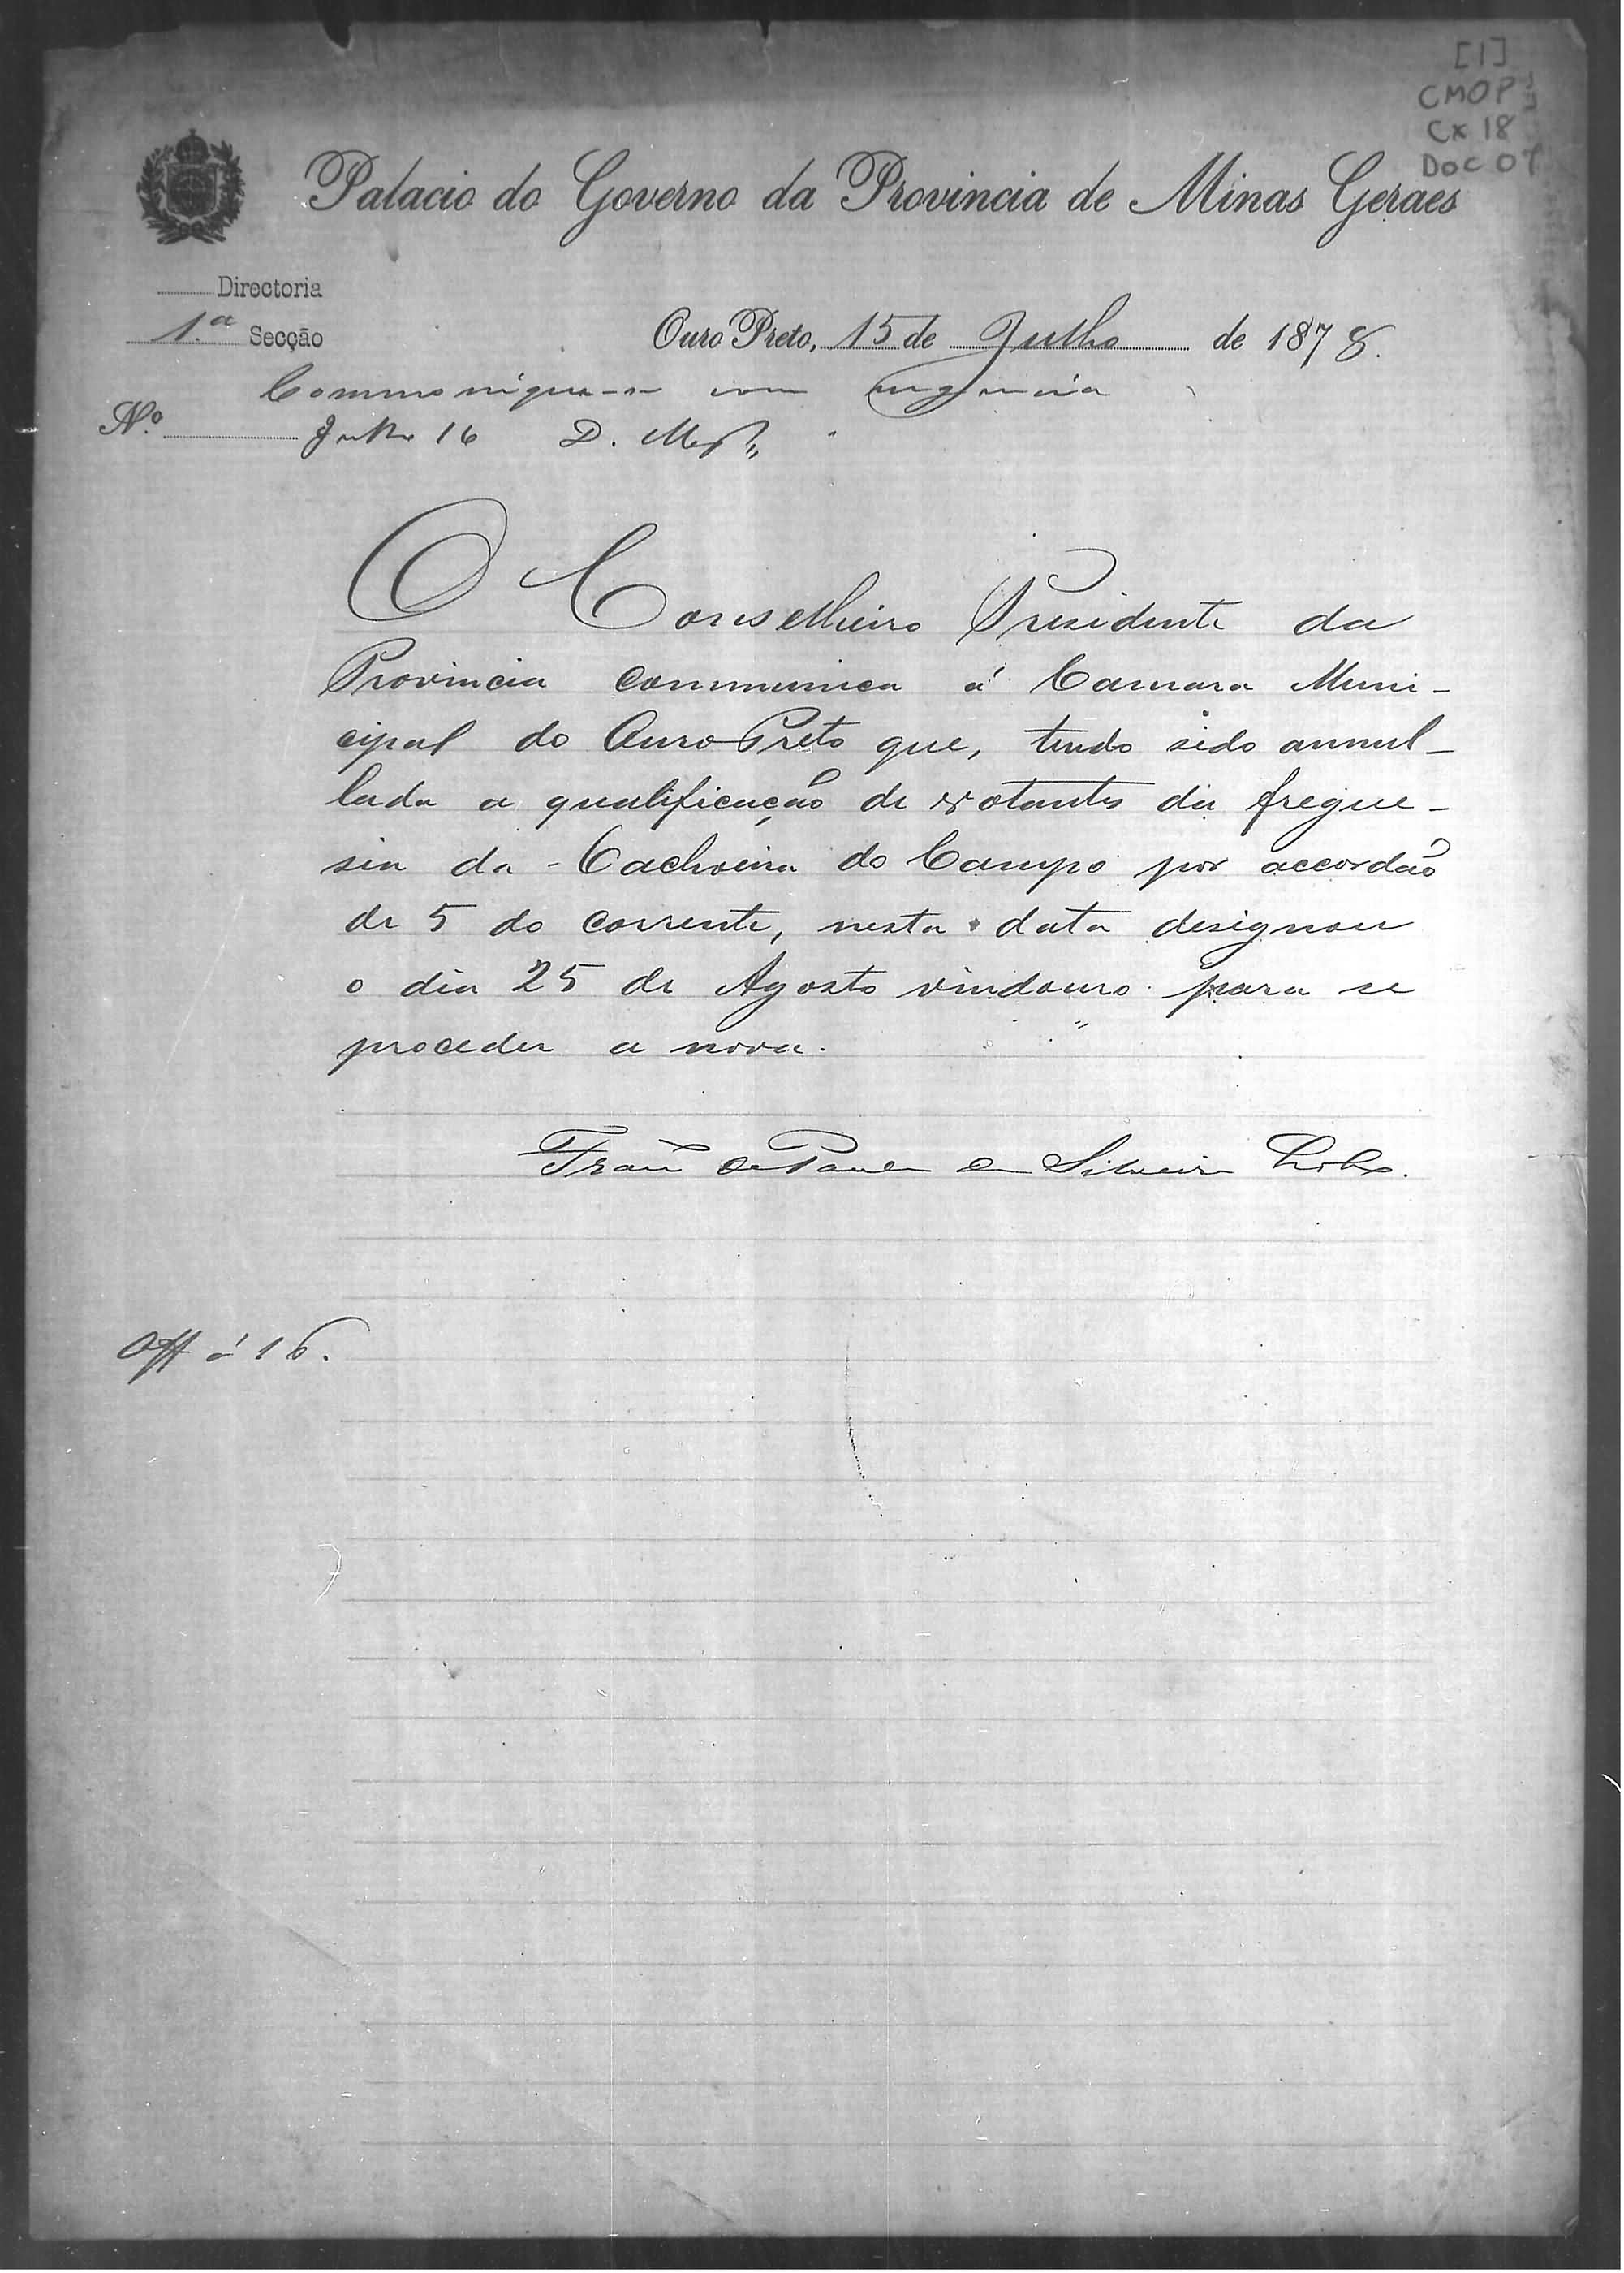 [1]
CMOP
Cx 18
Doc 07
Palacio do Governo da Provincia de Minas Geraes
Directoria
1.ª Secção
Ouro Preto, 15 de Julho de 1878.
Communique-se com urgencia
Nº
Julho 16 D.
O Conselheiro Presidente da
Provincia communica á Camara Muni-
cipal do Ouro Preto que, tendo sido annul-
lada a qualificação de votantes da fregue-
sia da Cachoeira do Campo por accordão
de 5 do corrente, nesta data designou
o dia 25 de Agosto vindouro para se
proceder a nova.
Franco de Paula da Silveira Lobo.
Off á 16.